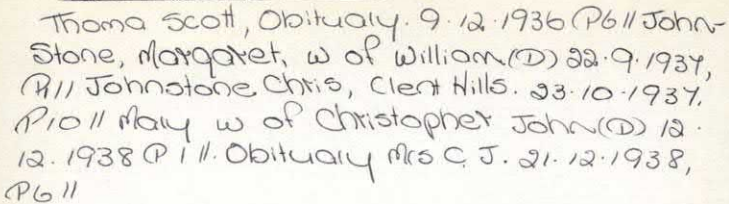 Thoma Scott, Obitualy. 9.12.1936 (P6 // John-
Stone, Margaret, w of William (D) 22.9.1937,
P1 // Johnstone Chris, Clent Hills. 23.10.1937.
P10 // Mary w of Christopher John (D) 12.
12.1938 P1 //. Obituary Mrs C. J. 21.12.1938,
P6 //